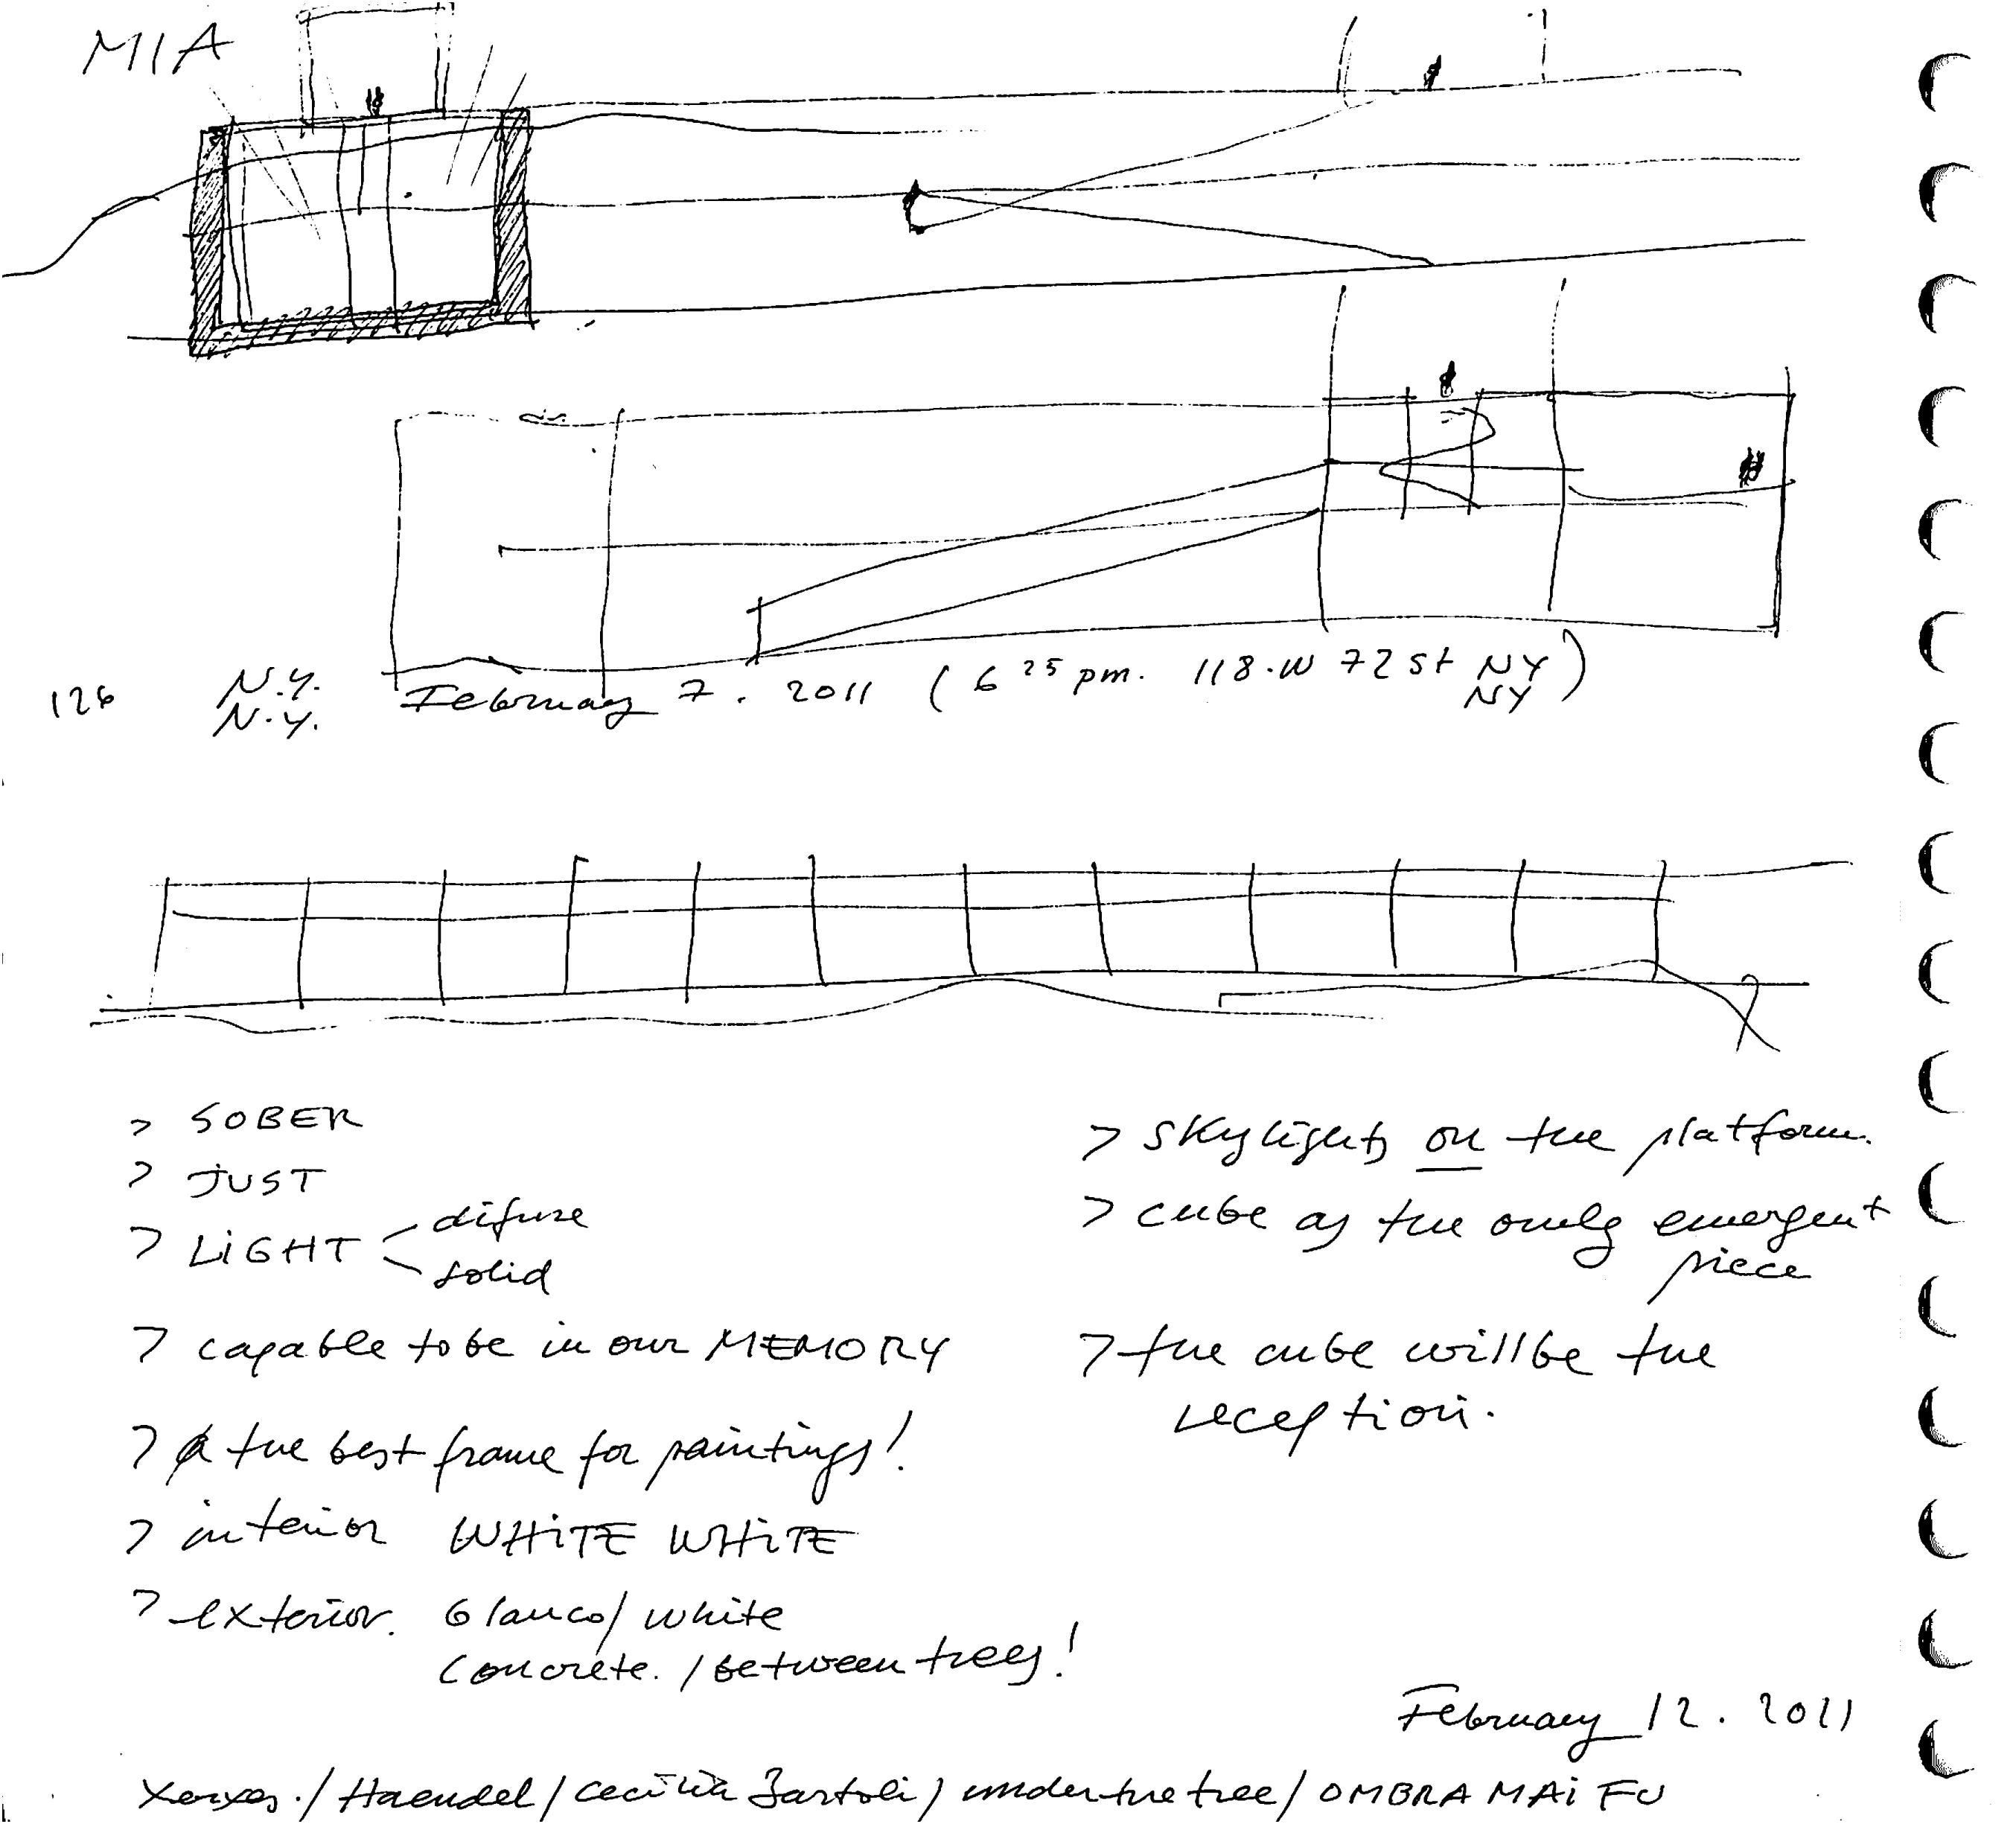 MIA
126 N.Y. February 7. 2011 (6 25 pm. 118. W 72 St NY
N.Y. NY)
> SOBER
> JUST
> LiGHT < difuse
solid
> capable to be in our MEMORY
> the best frame for paintings!
> interior WHiTE WHiTE
> exterior. blanco/ white
concrete. / between trees!
> skylights on the platform.
> cube as the only emergent
piece
> the cube will be the
reception.
February 12. 2011
Xerxes. / Haendel / Cecilia Bartoli / under the tree / OMBRA MAi FU